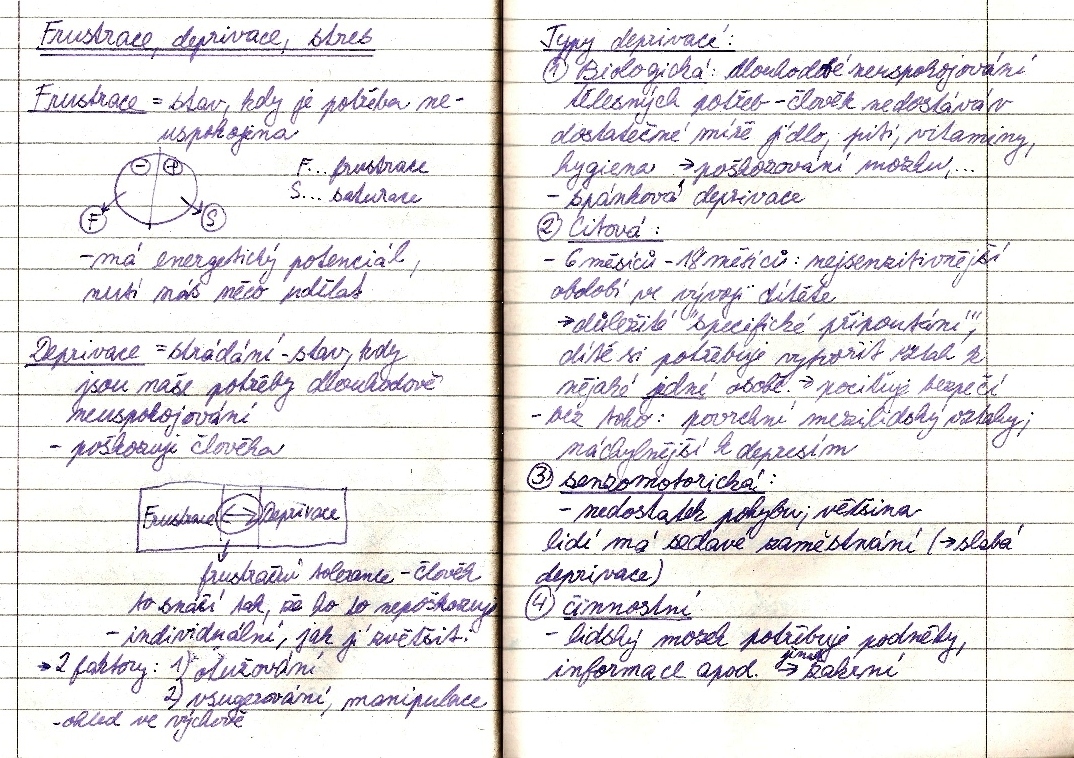 Frustrace, deprivace, stres
Frustrace = stav, kdy je potřeba ne-
uspokojena
- +
F S
F... frustrace
S... saturace
-má energetický potenciál,
nutí nás něco udělat
Deprivace = strádání - stav, kdy
jsou naše potřeby dlouhodově
neuspokojování
- poškozuje člověka
Frustrace ↔ Deprivace
frustrační tolerance - člověk
to snáší tak, že ho to nepoškozuje
- individuální, jak ji zvětšit:
→ 2 faktory: 1) otužování
2) vsugerování, manipulace
- ohled ve výchově
Typy deprivací:
① Biologická: dlouhodobé neuspokojování
tělesných potřeb - člověk nedostává v
dostatečné míře jídlo, pití, vitaminy,
hygiena → poškozování mozku,...
- spánková deprivace
② Citová:
- 6 měsíců - 18 měsíců: nejsenzitivnější
období ve vývoji dítěte
→ důležité "specifické připoutání",
dítě si potřebuje vytvořit vztah k
nějaké jedné osobě → pociťuje bezpečí
- bez toho: povrchní mezilidský vztahy;
náchylnější k depresím
③ senzomotorická:
- nedostatek pohybu; většina
lidí má sedavé zaměstnání (→ slabá
deprivace)
④ činnostní
- lidský mozek potřebuje podněty,
informace apod. → jinak zakrní